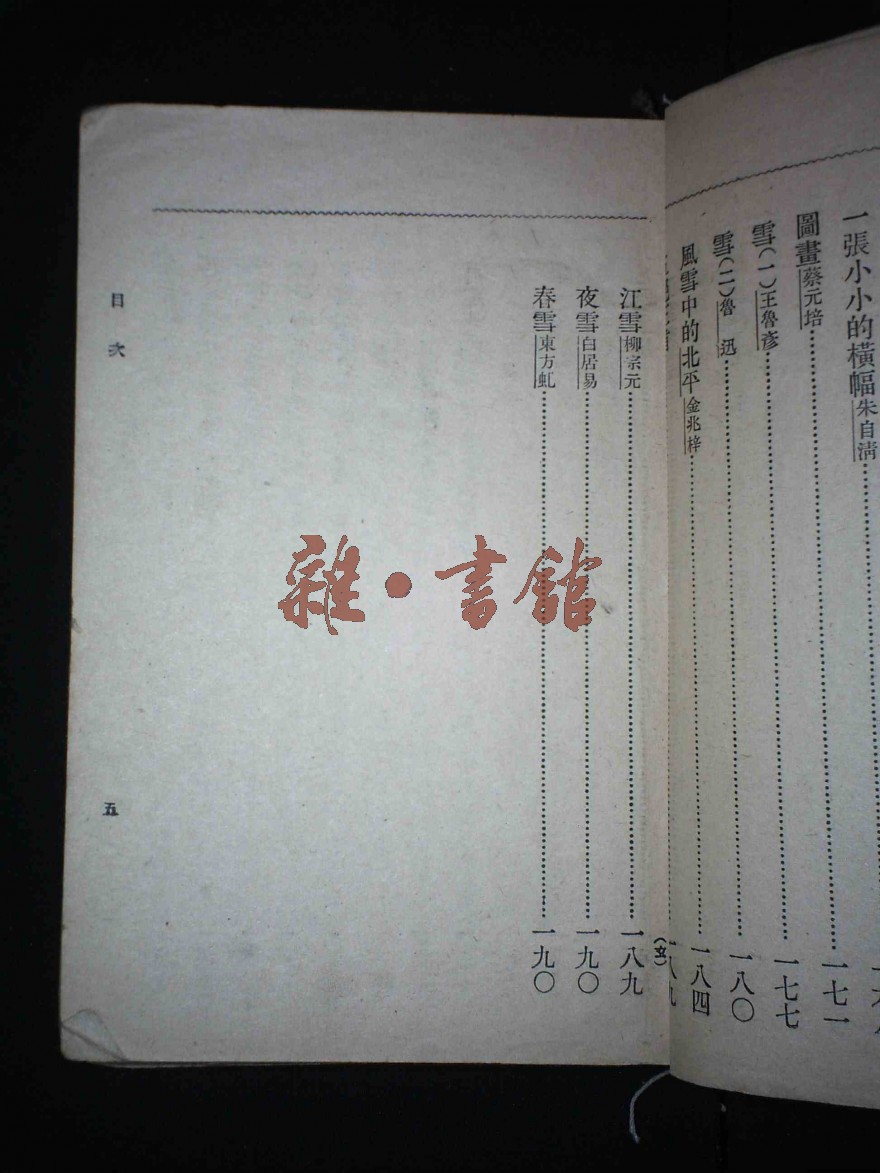 一張小小的橫幅朱自清
圖畫蔡元培……一七一
雪(一)王魯彥……一七七
雪(二)魯迅……一八〇
風雪中的北平金兆梓……一八四
一八九
(玄)
江雪柳宗元……一八九
夜雪白居易……一九〇
春雪東方虬……一九〇
目次
五
雜·書館